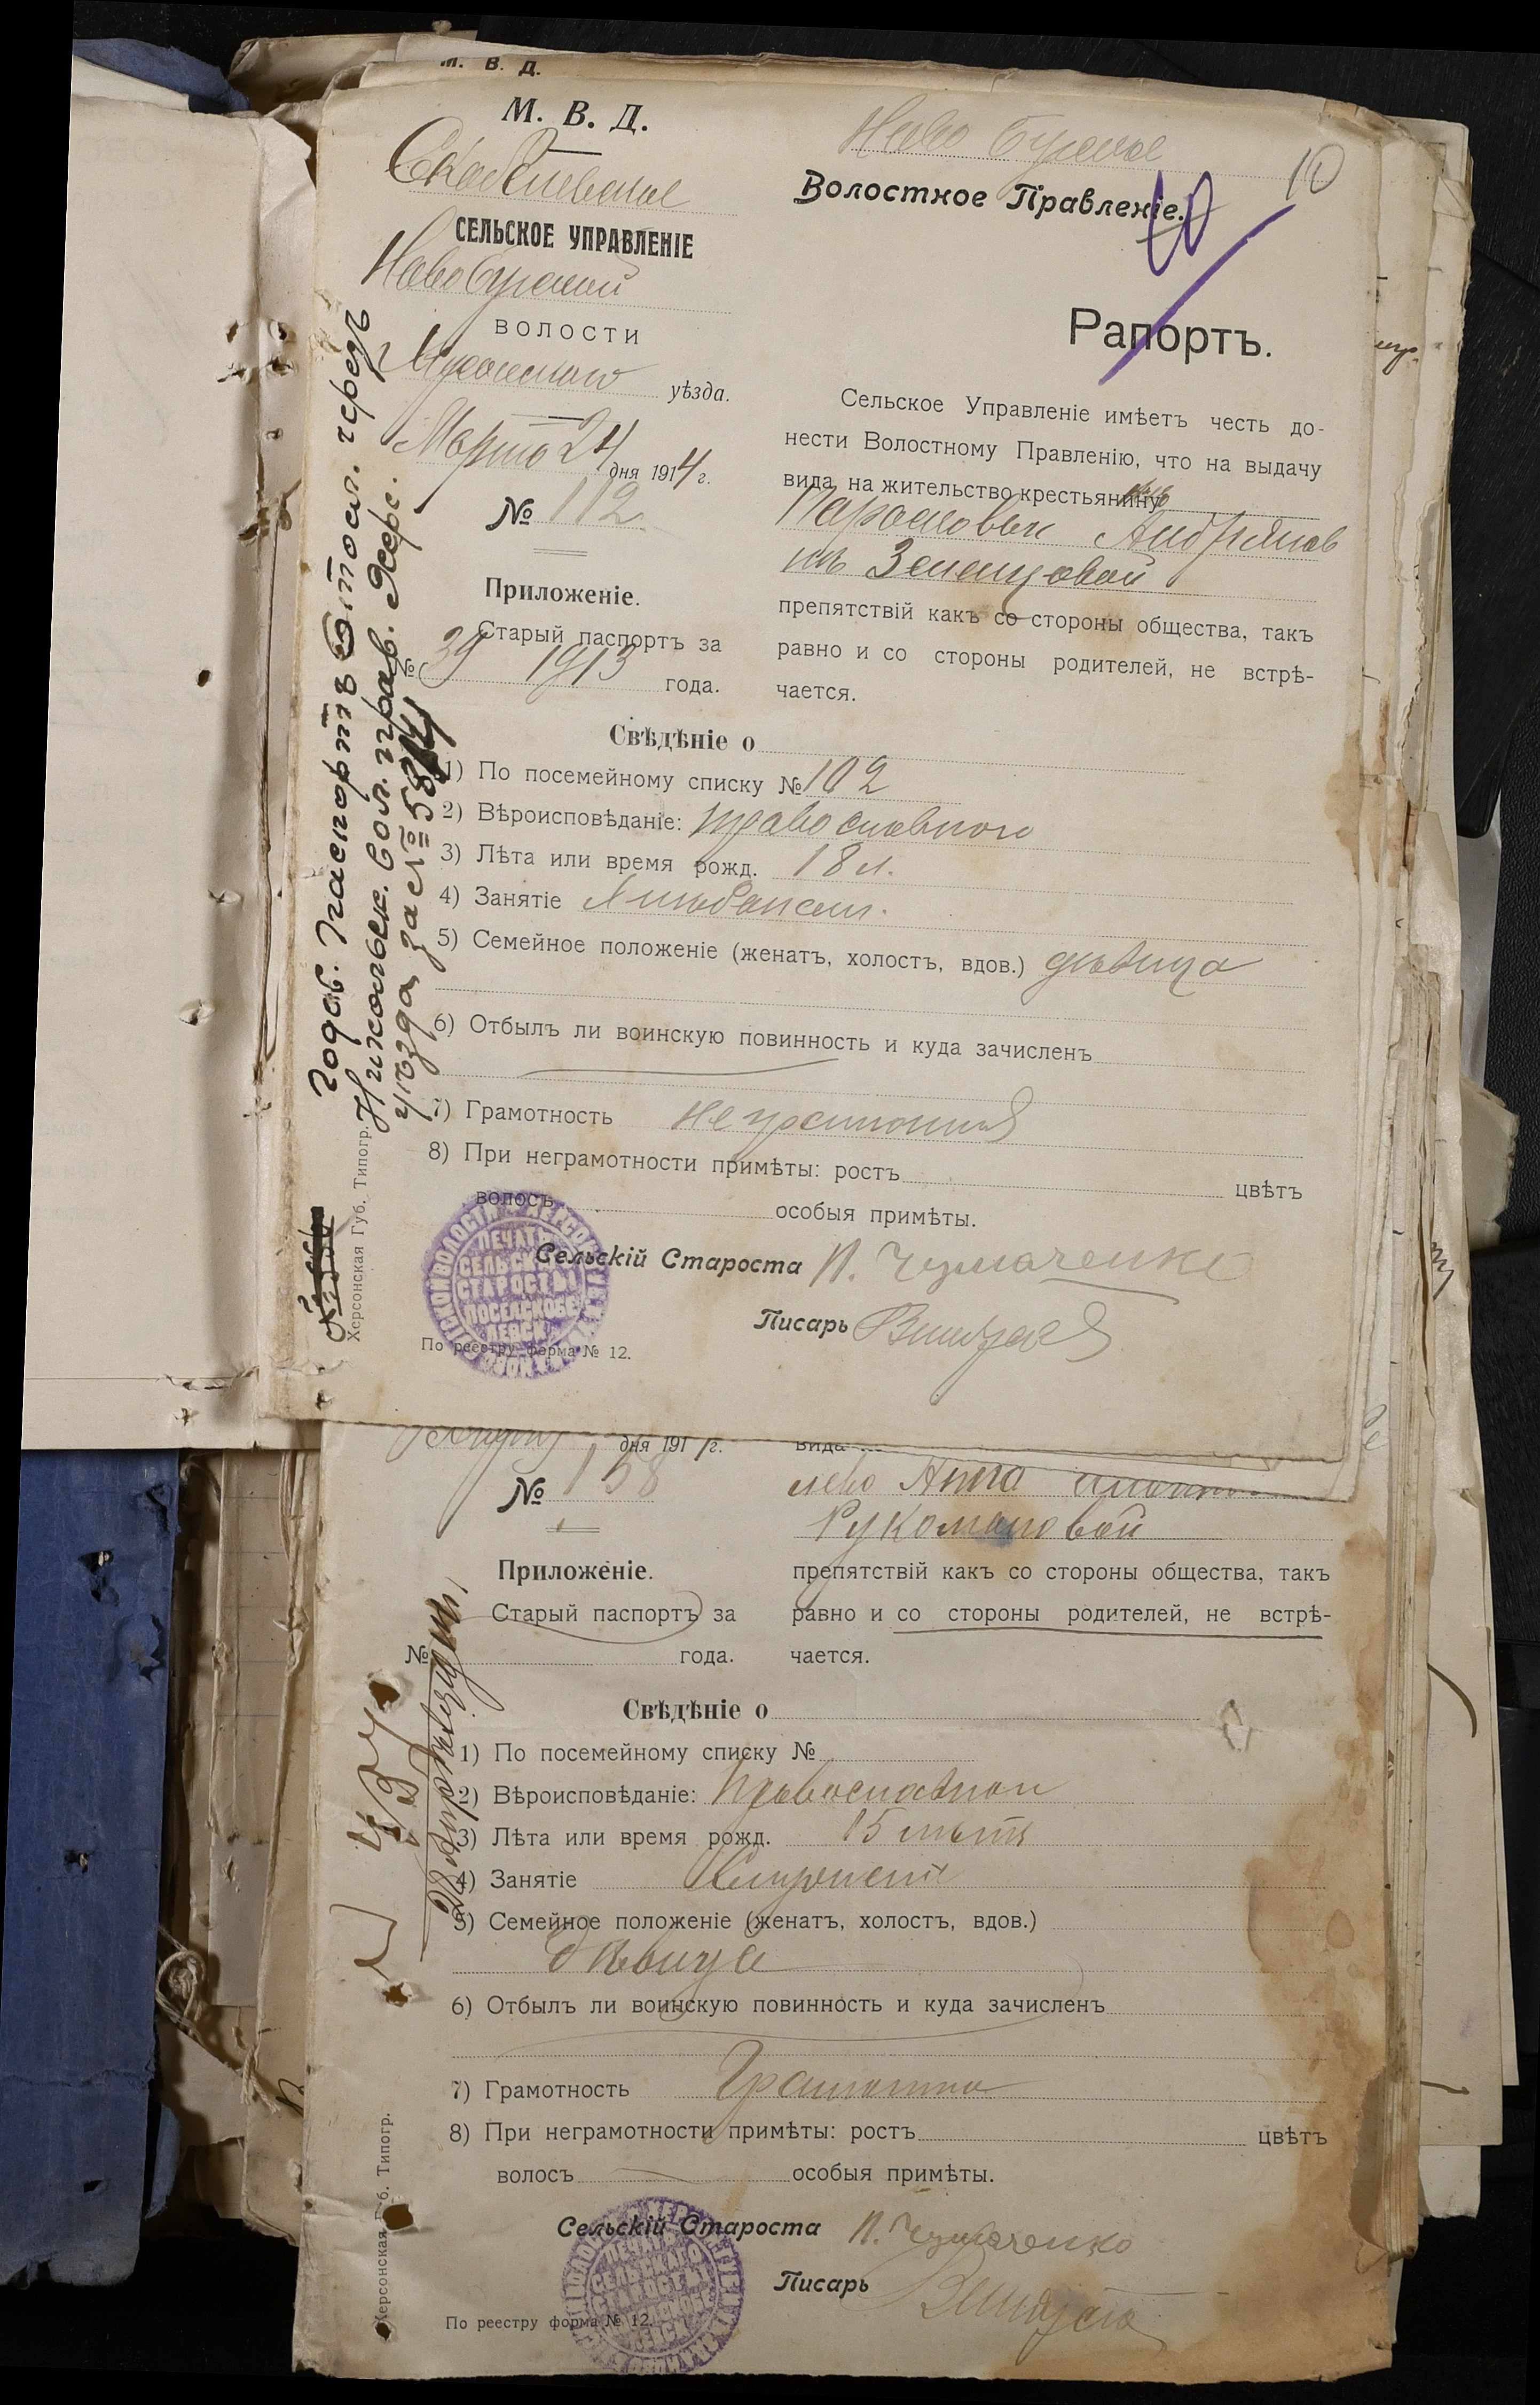 М. В. Д.
М. В. Д.
Скобелевское
СЕЛЬСКОЕ УПРАВЛЕНІЕ
Новобугской
ВОЛОСТИ
уѣзда.
Марта 24 дня 1914 г.
№ 112
Приложеніе.
Старый паспортъ за
№ 39 1913 года.
Ново Бугское
Волостное Правленіе.
10
10
Рапортъ.
Сельское Управленіе имѣетъ честь до-
нести Волостному Правленію, что на выдачу
вида на жительство крестьянину
Парасковьи Андріянов
препятствій какъ со стороны общества, такъ
равно и со стороны родителей, не встрѣ-
чается.
Свѣдѣніе о
1) По посемейному списку № 102
2) Вѣроисповѣданіе: православного
3) Лѣта или время рожд. 18 л.
4) Занятіе
5) Семейное положеніе (женатъ, холостъ, вдов.) дѣвица
6) Отбылъ ли воинскую повинность и куда зачисленъ
7) Грамотность неграмотная
8) При неграмотности примѣты: ростъ цвѣтъ
волосъ особыя примѣты.
Сельскій Староста П. Чумаченко
Писарь
По реестру форма № 12.
Херсонская Губ. Типогр.
Годов. паспортъ отосл. чрезъ
Никольск. вол. прав. Херс.
уѣзда за №
ПЕЧАТЬ
СЕЛЬСКАГО
СТАРОСТЫ
дня 191 г.
№ 158
Приложеніе.
Старый паспортъ за
№ года.
вида
Анна
Рукомановой
препятствій какъ со стороны общества, такъ
равно и со стороны родителей, не встрѣ-
чается.
Свѣдѣніе о
1) По посемейному списку №
2) Вѣроисповѣданіе:
3) Лѣта или время рожд. 15 лѣтъ
4) Занятіе
5) Семейное положеніе (женатъ, холостъ, вдов.)
дѣвица
6) Отбылъ ли воинскую повинность и куда зачисленъ
7) Грамотность Грамотна
8) При неграмотности примѣты: ростъ цвѣтъ
волосъ особыя примѣты.
Сельскій Староста П. Чумаченко
Писарь
По реестру форма № 12.
Херсонская Губ. Типогр.